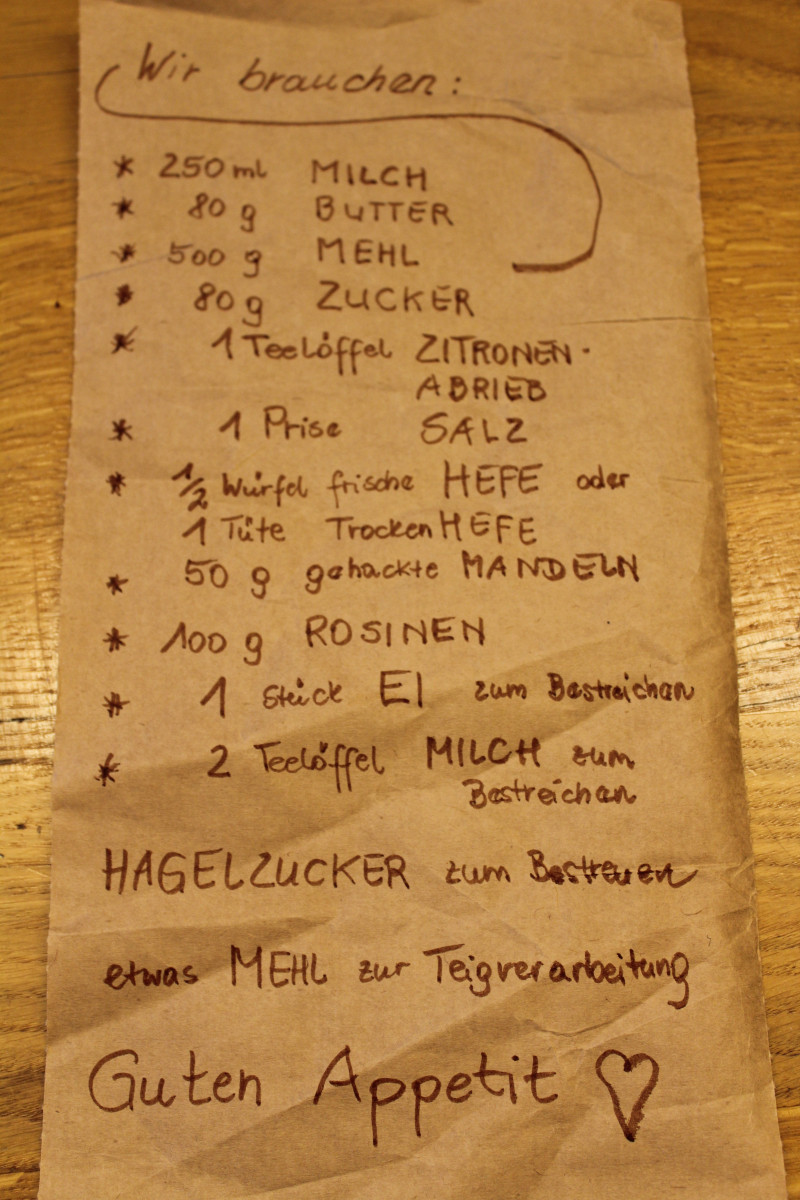 Wir brauchen:
* 250 ml MILCH
* 80 g BUTTER
* 500 g MEHL
* 80 g ZUCKER
* 1 Teelöffel ZITRONEN-
ABRIEB
* 1 Prise SALZ
* 1/2 Würfel frische HEFE oder
1 Tüte TrockenHEFE
* 50 g gehackte MANDELN
* 100 g ROSINEN
* 1 Stück EI zum Bestreichen
* 2 Teelöffel MILCH zum
Bestreichen
HAGELZUCKER zum Bestreuen
etwas MEHL zur Teigverarbeitung
Guten Appetit ♡